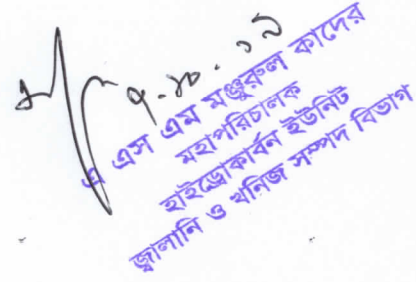 ৭.১০.১৯
এ এস এম মঞ্জুরুল কাদের
মহাপরিচালক
হাইড্রোকার্বন ইউনিট
জ্বালানি ও খনিজ সম্পদ বিভাগ